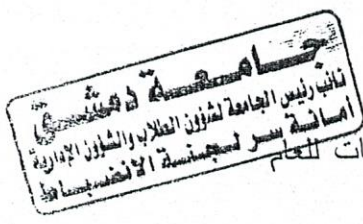 جامعة دمشق
نائب رئيس الجامعة لشؤون الطلاب والشؤون الإدارية
أمانة سر لجنة الانضباط
ات للعام